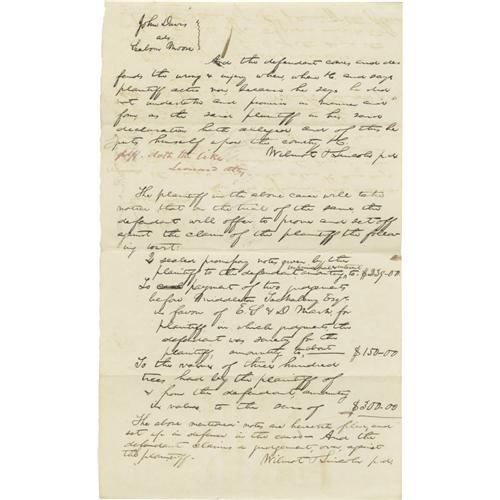 John Davis
ads
Seaborn Moore
And the defendant comes and de
fends the wrong & injury when, where &c and says
plaintiff actio non, because he says he did
not undertake and promise in manner and
form as the said plaintiff in his said
declaration hath alleged and of this he
puts himself upon the country &c
Wilmot & Lincoln p.d.
plff. doth the like
Leonard atty
The plaintiff in the above case will take
notice that in the trial of the same the
defendant will offer to prove and set off
against the claim of the plaintiff the follow
ing to wit:
2 sealed promissory notes given by the
plaintiff to the defendant amounting to $239-00
To payment of two judgments
before Middleton Esqr.
in favor of E. S & D
plaintiff in which judgments the
defendant was surety for the
plaintiff, amounting to about $150-00
To the value of three hundred
trees had by the plaintiff of
& from the defendant, amounting
in value to the sum of $300.00
The above mentioned notes are herewith filed, and
set up in defence in the cause. And the
defendant claims a judgement, over, against
the plaintiff.
Wilmot & Lincoln p.d.